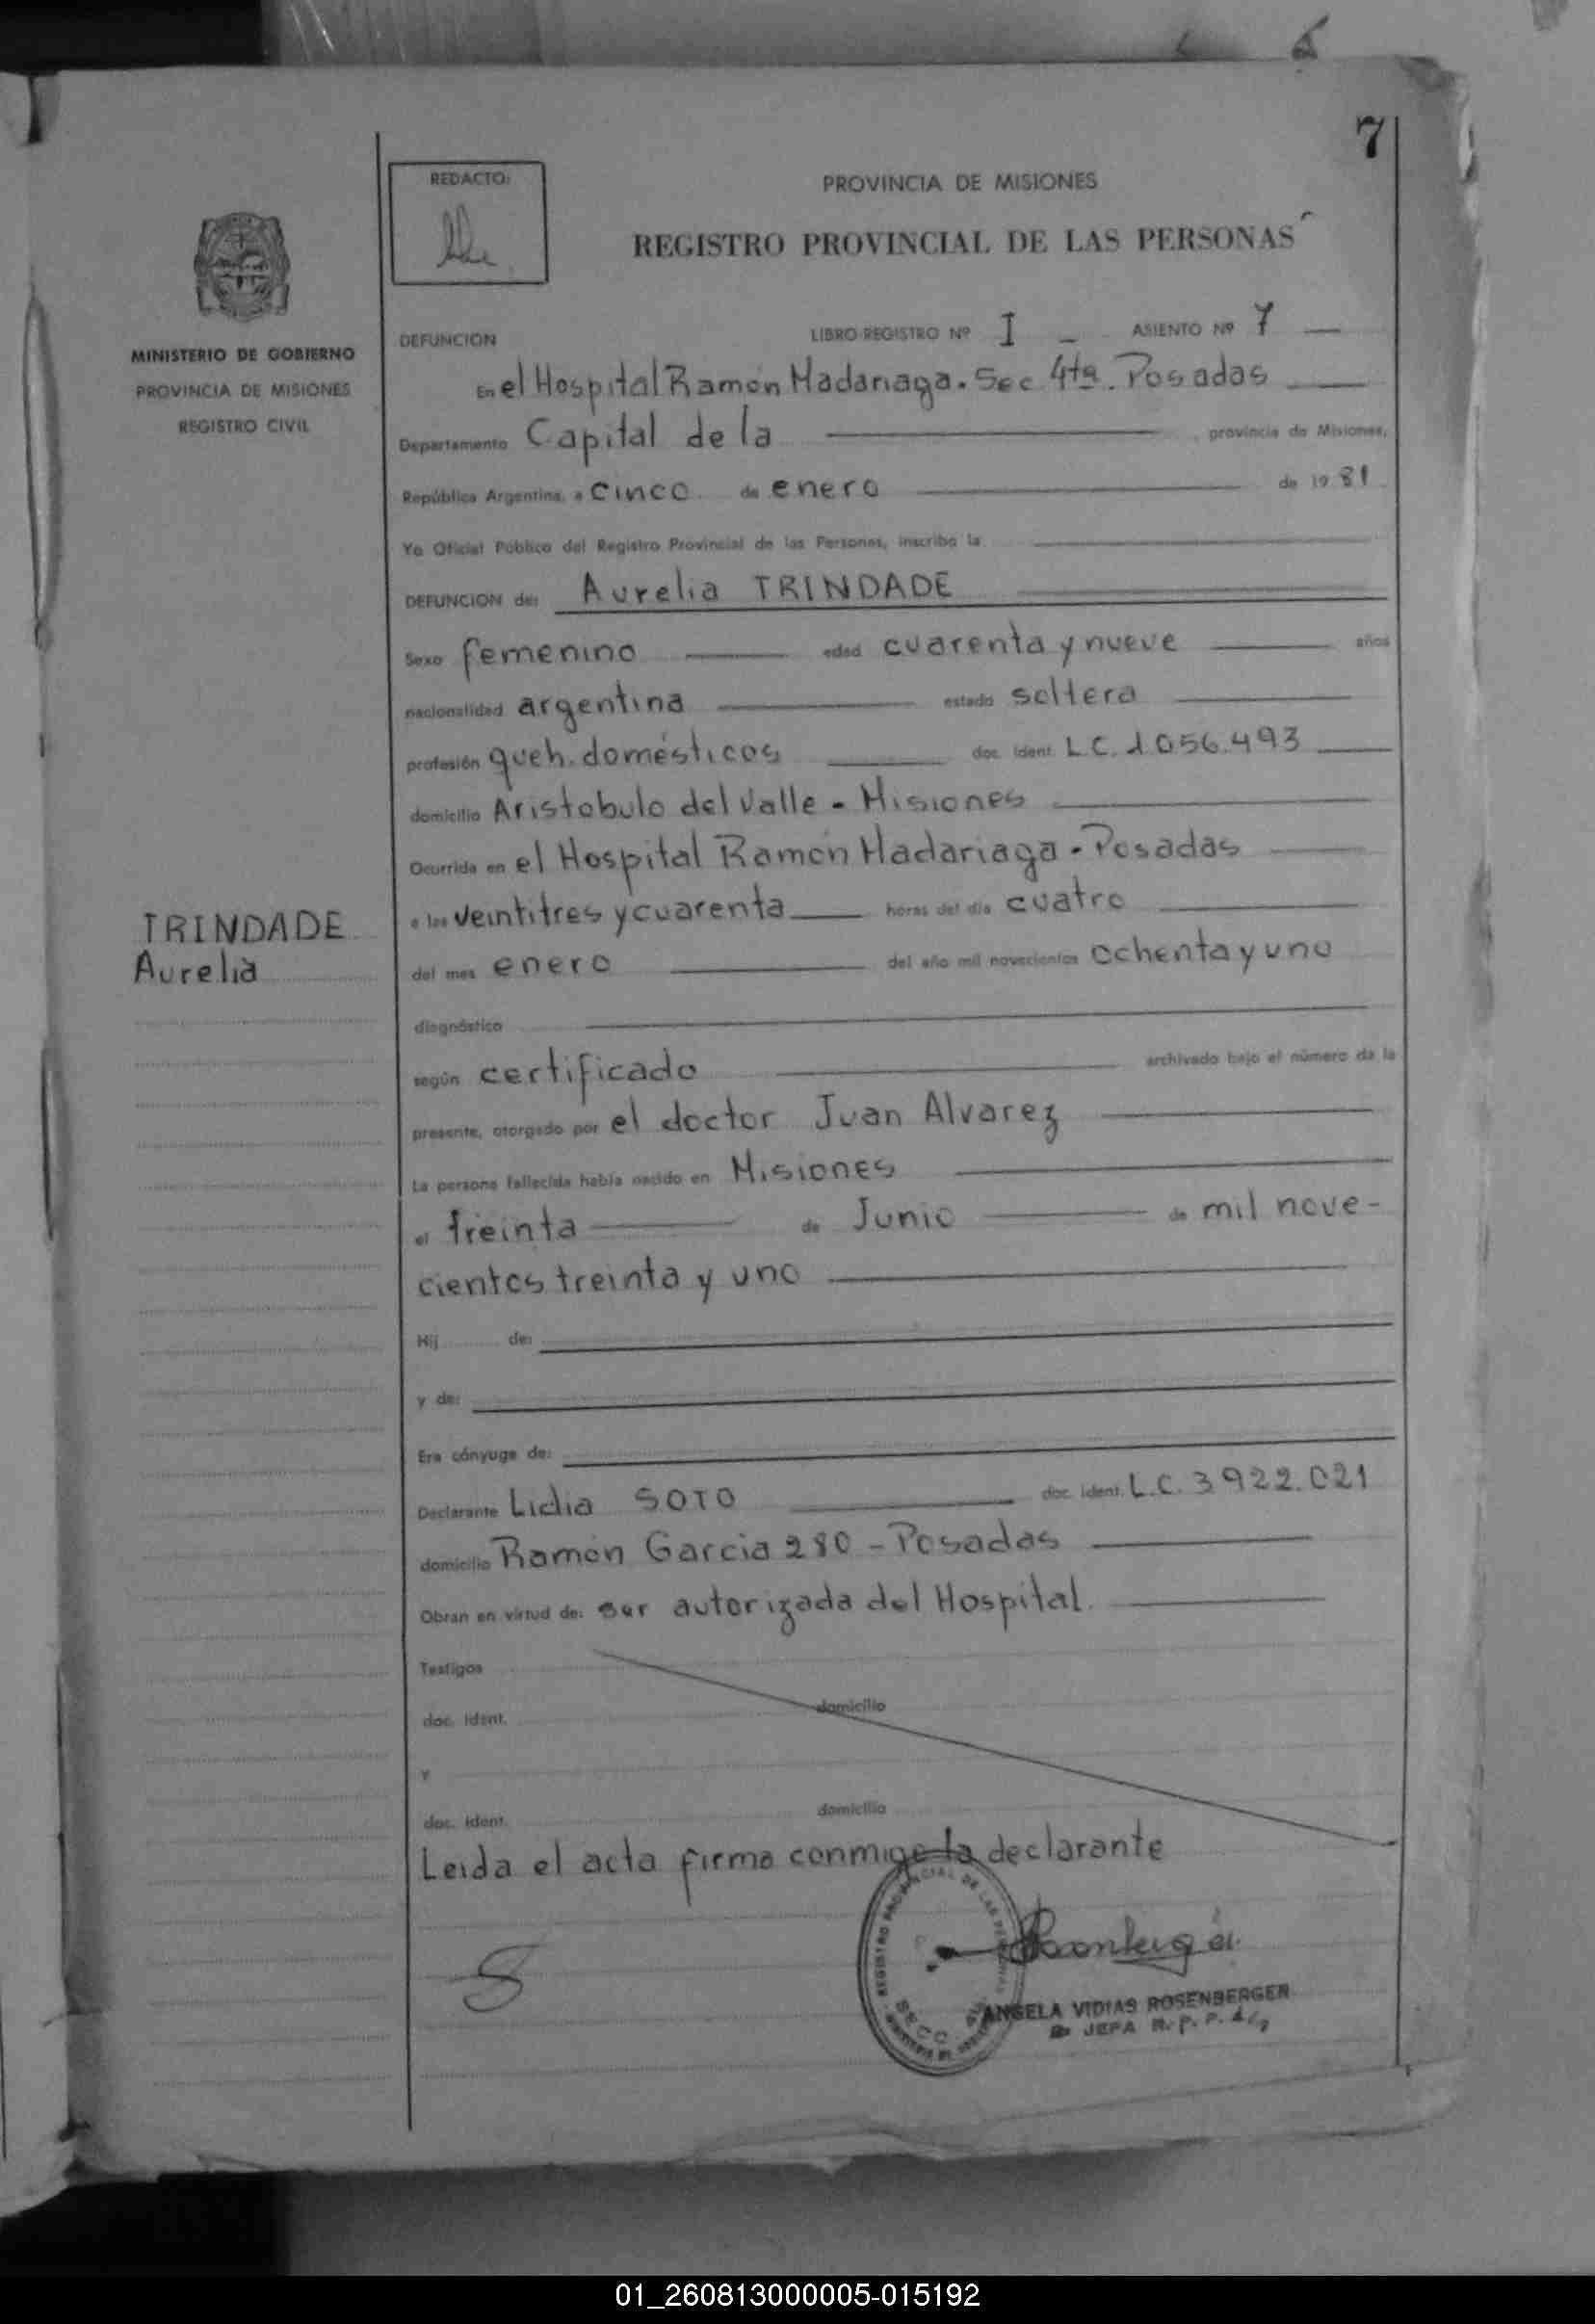 7
REDACTO:
PROVINCIA DE MISIONES
REGISTRO PROVINCIAL DE LAS PERSONAS
MINISTERIO DE GOBIERNO
PROVINCIA DE MISIONES
REGISTRO CIVIL
DEFUNCION LIBRO REGISTRO Nº I - ASIENTO Nº 7
En el Hospital Ramón Madariaga. Sec 4ta. Posadas
Departamento Capital de la provincia de Misiones,
República Argentina, a cinco de enero de 1981
Yo Oficial Público del Registro Provincial de las Personas, inscribo la
DEFUNCION de: Aurelia TRINDADE
Sexo femenino edad cuarenta y nueve años
nacionalidad argentina estado soltera
profesión queh. domésticos doc. ident. L.C. 1.056.493
domicilio Aristobulo del Valle - Misiones
Ocurrida en el Hospital Ramón Madariaga - Posadas
a las veintitres y cuarenta horas del día cuatro
TRINDADE
Aurelia
del mes enero del año mil novecientos ochenta y uno
diagnóstico
según certificado archivado bajo el número de la
presente, otorgado por el doctor Juan Alvarez
La persona fallecida había nacido en Misiones
el treinta de Junio de mil nove-
cientos treinta y uno
Hij de:
y de:
Era cónyuge de:
Declarante Lidia SOTO doc. ident. L.C. 3922.021
domicilio Ramón Garcia 280 - Posadas
Obran en virtud de: ser autorizada del Hospital.
Testigos
doc. ident. domicilio
y
doc. ident. domicilio
Leida el acta firma conmigo la declarante
REGISTRO PROVINCIAL DE LAS PERSONAS
SECC
ANGELA VIDIAS ROSENBERGER
JEFA R. P. P.
01_260813000005-015192